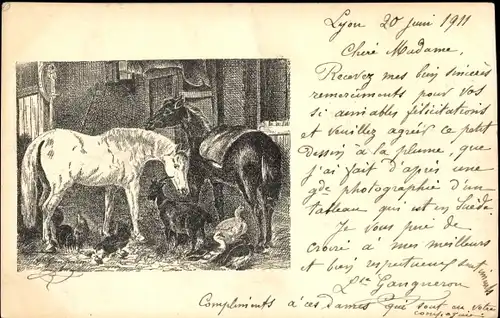 Lyon 20 juin 1911
Chère Madame,
Recevez mes bien sincères
remerciments pour vos
si aimables félicitations
et veuillez agréer ce petit
dessin à la plume, que
j'ai fait d'après une
gde photographie d'un
tableau qui est en Suède
Je vous prie de
croire à mes meilleurs
et bien respectueux sentiments
Gangneron
Compliments à ces dames qui sont en votre
compagnie